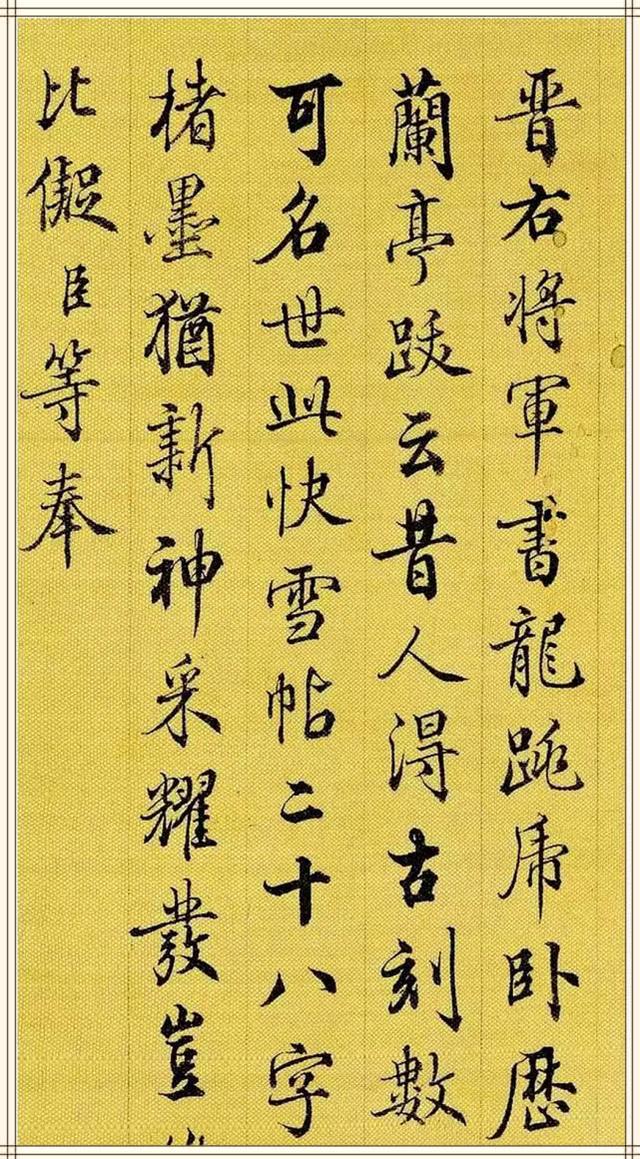 晋右将軍書龍跳虎卧歷
蘭亭跋云昔人得古刻數
可名世此快雪帖二十八字
楮墨猶新神采耀發豈
比儗臣等奉